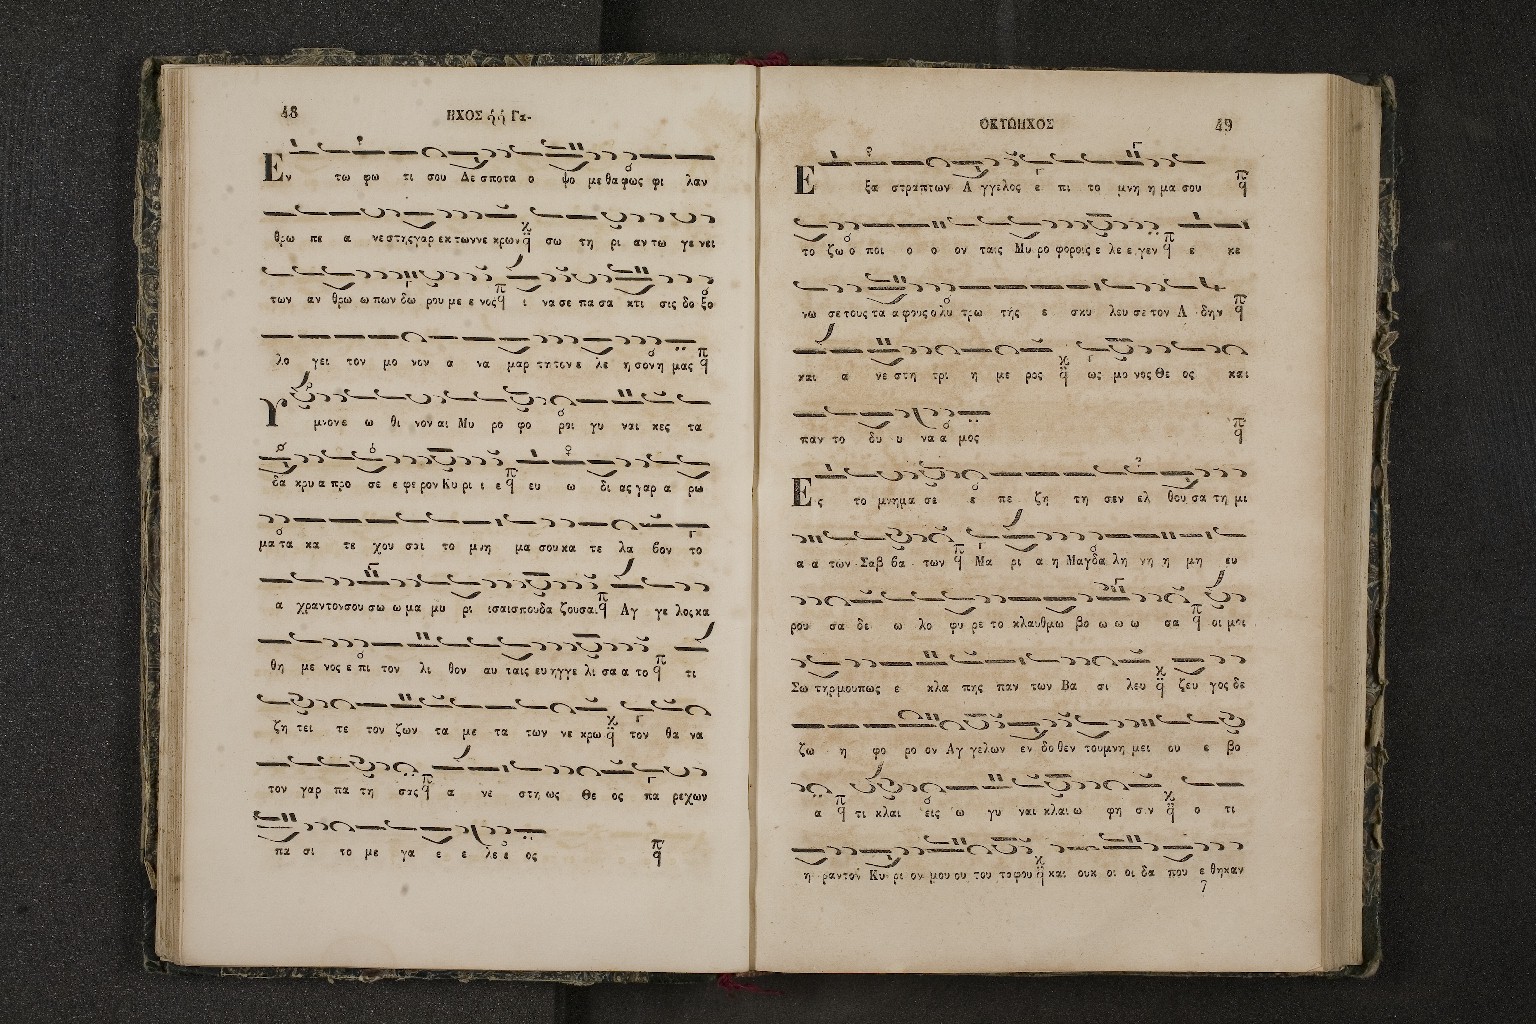 48
ΗΧΟΣ ή ή Γα-
Εν τω φω τι σου Δε σποτα ο ψο με θα φως φι λαν
θρω πε α νε στης γαρ εκ των νε κρων σω τη ρι αν τω γε νει
των αν θρω ω πων δω ρου με ε νος ι να σε πα σα κτι σις δο ξο
λο γει τον μο νον α να μαρ τη τον ε λε η σον η μας
Υ μνον ε ω θι νον αι Μυ ρο φο ροι γυ ναι κες τα
δα κρυ α προ σε ε φε ρον Κυ ρι ι ε ευ ω δι ας γαρ α ρω
μα τα κα τε χου σαι το μνη μα σου κα τε λα βον το
α χραντον σου σω ω μα μυ ρι ισαι σπουδα ζουσαι Αγ γε λος κα
θη με νος ε πι τον λι θον αυ ταις ευ ηγγε λι σα α το τι
ζη τει τε τον ζων τα με τα των νε κρω τον θα να
τον γαρ πα τη σας α νε στη ως Θε ος πα ρεχων
πα σι το με γα ε ε λε ε ος
ΟΚΤΩΗΧΟΣ
49
Ε ξα στραπτων Α γγελος ε πι το μνη η μα σου
το ζω ο ποι ο ο ον ταις Μυ ρο φοροις ε λε ε γεν ε κε
νω σε τους τα α φους ο λυ τρω τής ε σκυ λευ σε τον Α δην
και α νε στη τρι η με ρος ως μο νος Θε ος και
παν το δυ υ να α μος
Ες το μνημα σε ε πε ζη τη σεν ελ θου σα τη μι
α α των Σαβ βα των Μα ρι α η Μαγδα λη νη η μη ευ
ρου σα δε ω λο φυ ρε το κλαυθμω βο ω ω ω σα οι μοι
Σω τηρ μου πως ε κλα πης παν των Βα σι λευ ζευ γος δε
ζω η φο ρο ον Αγ γελων εν δο θεν του μνη μει ου ε βο
α τι κλαι εις ω γυ ναι κλαι ω φη σιν ο τι
η ραντον Κυ ρι ον μου ου του ταφου και ουκ οι οι δα που ε θηκαν
7